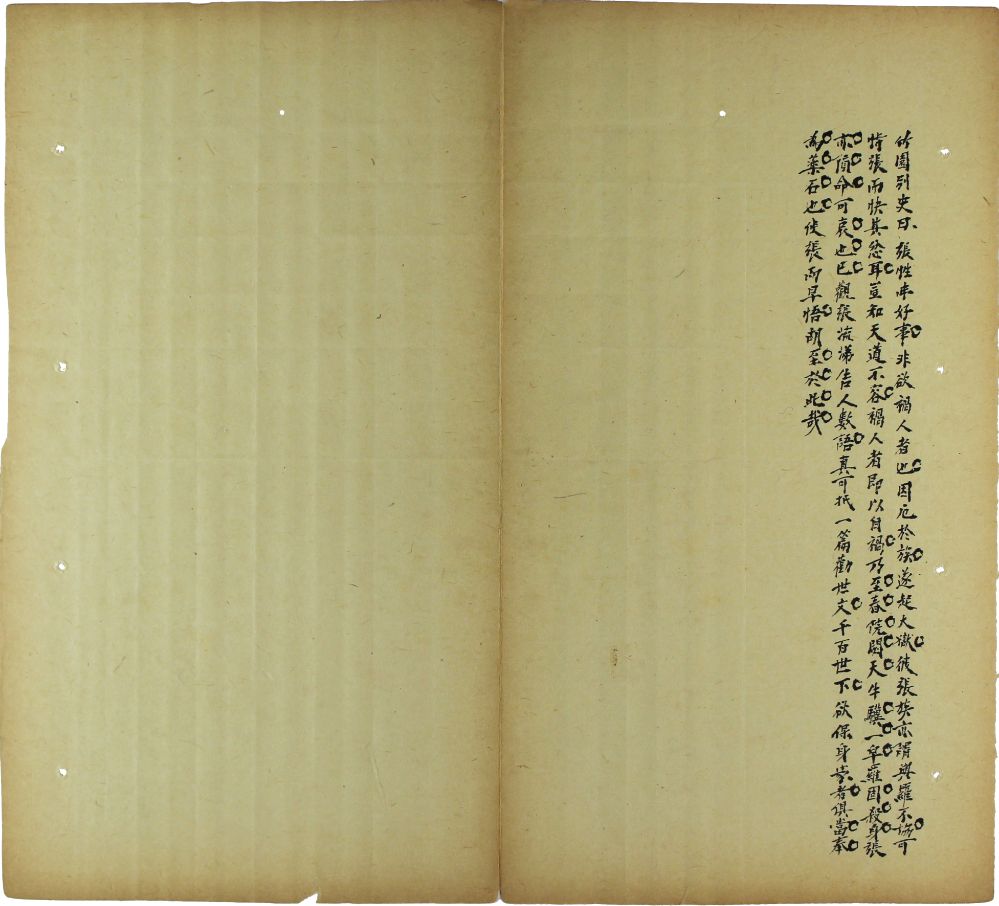 竹園列史曰張性本好事非欲禍人者也因厄於族遂起大獄彼張族亦謂與羅不協可
恃張而快其忿耳豈知天道不容禍人者即以自禍乃至春院閧天牛驥一皁羅固殺身張
亦頂命可哀也已觀張流涕告人數語真可抵一篇勸世文千百世下欲保身家者俱當奉
為藥石也使張而早悟胡至於此哉